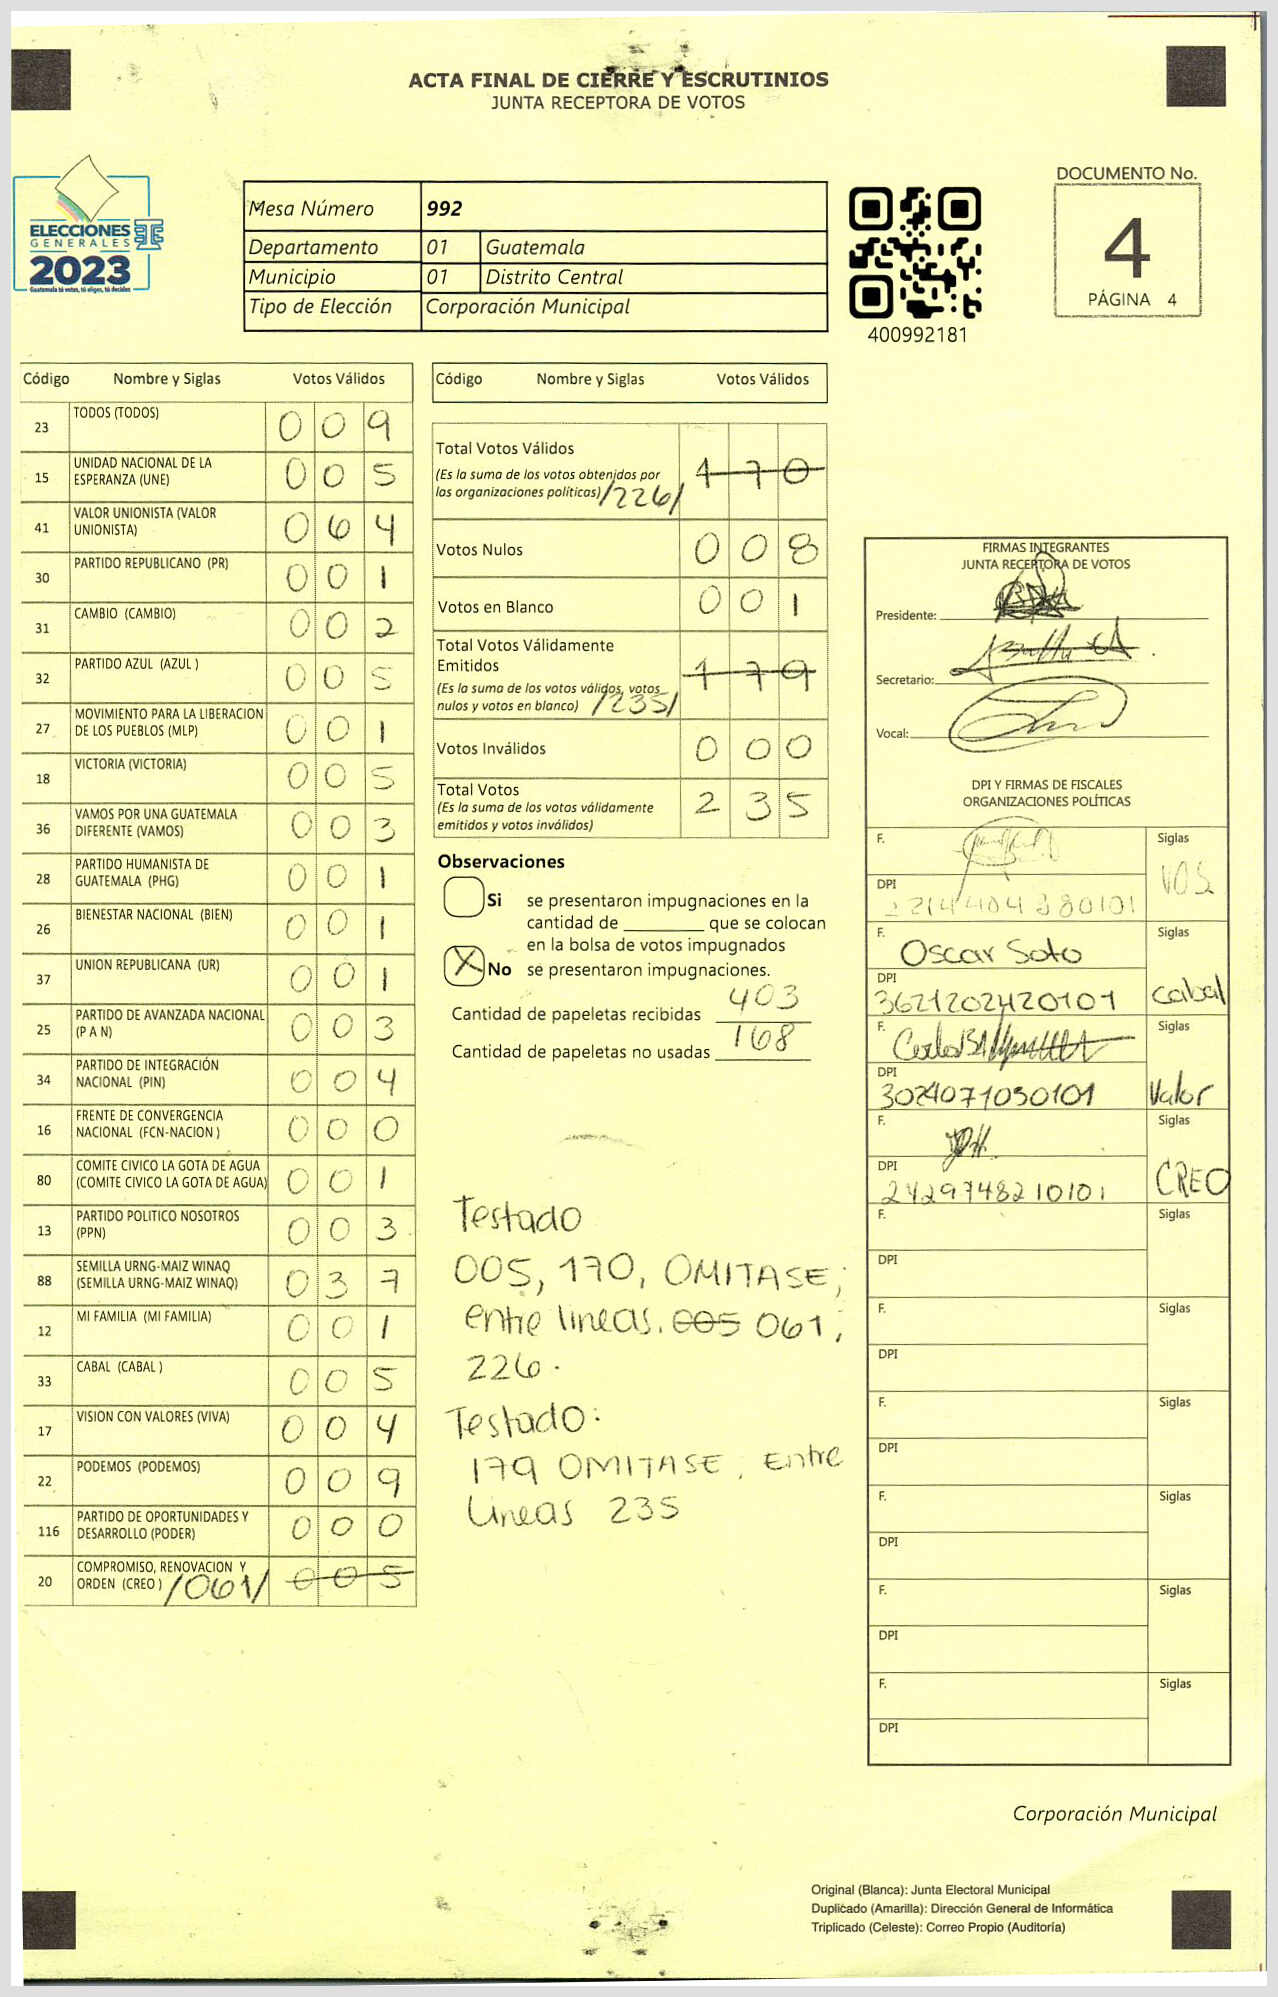 ACTA FINAL DE CIERRE Y ESCRUTINIOS
JUNTA RECEPTORA DE VOTOS
ELECCIONES
GENERALES
2023
Guatemala tú votas, tú eliges, tú decides
Mesa Número 992
Departamento 01 Guatemala
Municipio 01 Distrito Central
Tipo de Elección Corporación Municipal
400992181
DOCUMENTO No.
4
PÁGINA 4
Código Nombre y Siglas Votos Válidos
23 TODOS (TODOS) 0 0 9
15 UNIDAD NACIONAL DE LA
ESPERANZA (UNE) 0 0 5
41 VALOR UNIONISTA (VALOR
UNIONISTA) 0 6 4
30 PARTIDO REPUBLICANO (PR) 0 0 1
31 CAMBIO (CAMBIO) 0 0 2
32 PARTIDO AZUL (AZUL ) 0 0 5
27 MOVIMIENTO PARA LA LIBERACION
DE LOS PUEBLOS (MLP) 0 0 1
18 VICTORIA (VICTORIA) 0 0 5
36 VAMOS POR UNA GUATEMALA
DIFERENTE (VAMOS) 0 0 3
28 PARTIDO HUMANISTA DE
GUATEMALA (PHG) 0 0 1
26 BIENESTAR NACIONAL (BIEN) 0 0 1
37 UNION REPUBLICANA (UR) 0 0 1
25 PARTIDO DE AVANZADA NACIONAL
(P A N) 0 0 3
34 PARTIDO DE INTEGRACIÓN
NACIONAL (PIN) 0 0 4
16 FRENTE DE CONVERGENCIA
NACIONAL (FCN-NACION ) 0 0 0
80 COMITE CIVICO LA GOTA DE AGUA
(COMITE CIVICO LA GOTA DE AGUA) 0 0 1
13 PARTIDO POLITICO NOSOTROS
(PPN) 0 0 3
88 SEMILLA URNG-MAIZ WINAQ
(SEMILLA URNG-MAIZ WINAQ) 0 3 7
12 MI FAMILIA (MI FAMILIA) 0 0 1
33 CABAL (CABAL ) 0 0 5
17 VISION CON VALORES (VIVA) 0 0 4
22 PODEMOS (PODEMOS) 0 0 9
116 PARTIDO DE OPORTUNIDADES Y
DESARROLLO (PODER) 0 0 0
20 COMPROMISO, RENOVACION Y
ORDEN (CREO ) /061/ 0 0 5
Código Nombre y Siglas Votos Válidos
Total Votos Válidos 1 7 0
(Es la suma de los votos obtenidos por
las organizaciones políticas) /226/
Votos Nulos 0 0 8
Votos en Blanco 0 0 1
Total Votos Válidamente
Emitidos 1 7 9
(Es la suma de los votos válidos, votos
nulos y votos en blanco) /235/
Votos Inválidos 0 0 0
Total Votos 2 3 5
(Es la suma de los votos válidamente
emitidos y votos inválidos)
Observaciones
Si se presentaron impugnaciones en la
cantidad de ________ que se colocan
en la bolsa de votos impugnados
X No se presentaron impugnaciones.
Cantidad de papeletas recibidas 403
Cantidad de papeletas no usadas 168
Testado
005, 170, OMITASE;
entre lineas. 005 061;
226.
Testado:
179 OMITASE, Entre
Lineas 235
FIRMAS INTEGRANTES
JUNTA RECEPTORA DE VOTOS
Presidente:
Secretario:
Vocal:
DPI Y FIRMAS DE FISCALES
ORGANIZACIONES POLÍTICAS
F. Siglas
DPI
F. Oscar Soto Siglas
DPI
3621202420101 Cabal
F. Siglas
DPI
3024071050101 Valor
F. Siglas
DPI
2429748210101 CREO
F. Siglas
DPI
F. Siglas
DPI
F. Siglas
DPI
F. Siglas
DPI
F. Siglas
DPI
F. Siglas
DPI
Corporación Municipal
Original (Blanca): Junta Electoral Municipal
Duplicado (Amarilla): Dirección General de Informática
Triplicado (Celeste): Correo Propio (Auditoría)